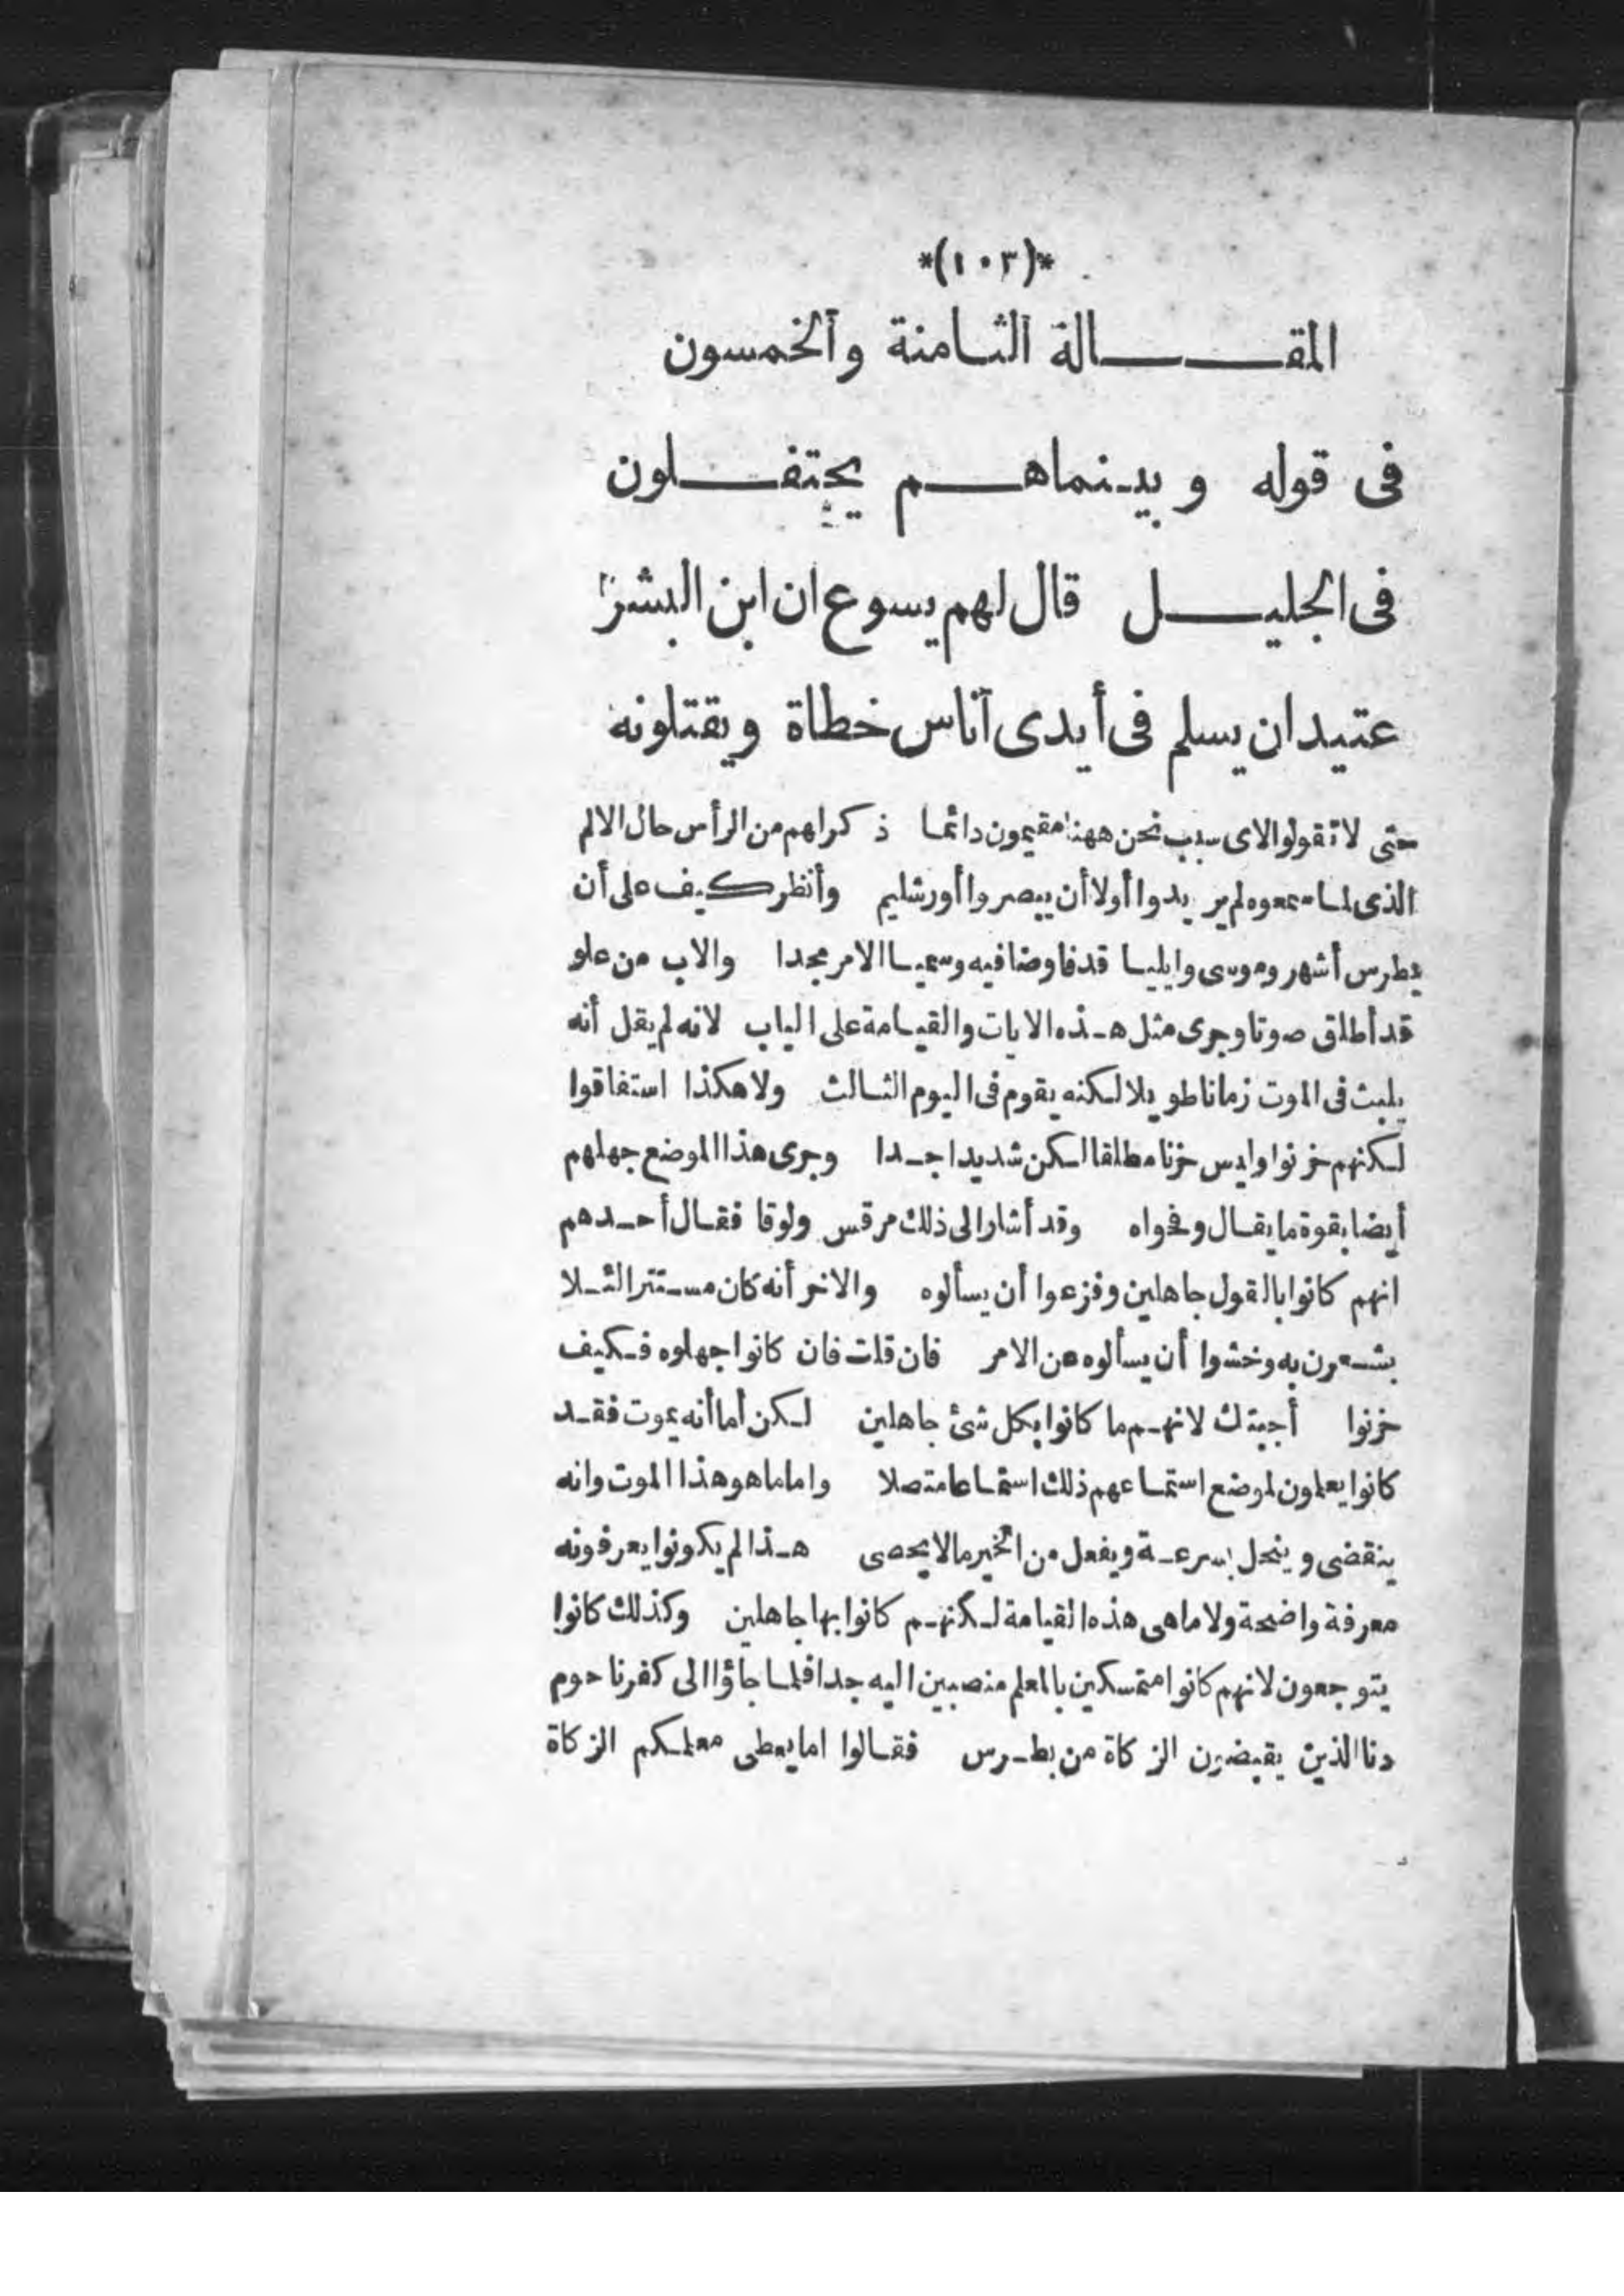 *(١٠٣)*
المقـــــالة الثـامنة والخمسون
فى قوله وبيـنماهـــم يحتفـــلون
فى الجليـــل قال لهم يسوع ان ابن البشر
عتيد ان يسلم فى أيدى آناس خطاة ويقتلونه
حتى لا تقولوا لاى سبب نحن ههنا مقيمون دائمـا ذكر لهم من الرأس حال الالم
الذى لمـا سمعوه لم يريدوا أولا أن يبصروا أورشليم وأنظر كيف على أن
بطرس أشهر وموسى وايليـا قد فاوضا فيه وسميـا الامر مجدا والاب من علو
قد أطلق صوتا وجرى مثل هـذه الايات والقيـامة على الباب لانه لم يقل أنه
يلبث فى الموت زمانا طويلا لكنه يقوم فى اليوم الثـالث ولا هكذا استفاقوا
لـكنهم حزنوا وليس حزنا مطلقا لـكن شديدا جـدا وجرى هذا الموضع جهلهم
أيضا بقوة ما يقـال وفحواه وقد أشار الى ذلك مرقس ولوقا فقـال أحـدهم
انهم كانوا بالقول جاهلين وفزعوا أن يسألوه والاخر أنه كان مسـتترا لئـلا
يشـعرون به وخشوا أن يسألوه عن الامر فان قلت فان كانوا جهلوه فـكيف
حزنوا أجبتك لانهـم ما كانوا بكل شئ جاهلين لـكن أما أنه يموت فقـد
كانوا يعلمون لموضع استمـاعهم ذلك استمـاعا متصلا واما ما هو هذا الموت وانه
ينقضى وينحل بسرعـة ويفعل من الخير ما لا يحصى هـذا لم يكونوا يعرفونه
معرفة واضحة ولا ما هى هذه القيامة لـكنهـم كانوا بها جاهلين وكذلك كانوا
يتوجعون لانهم كانوا متمسكين بالمعلم منصبين اليه جدا فلمـا جاؤا الى كفرناحوم
دنا الذين يقبضون الزكاة من بطـرس فقـالوا اما يعطى معلمـكم الزكاة